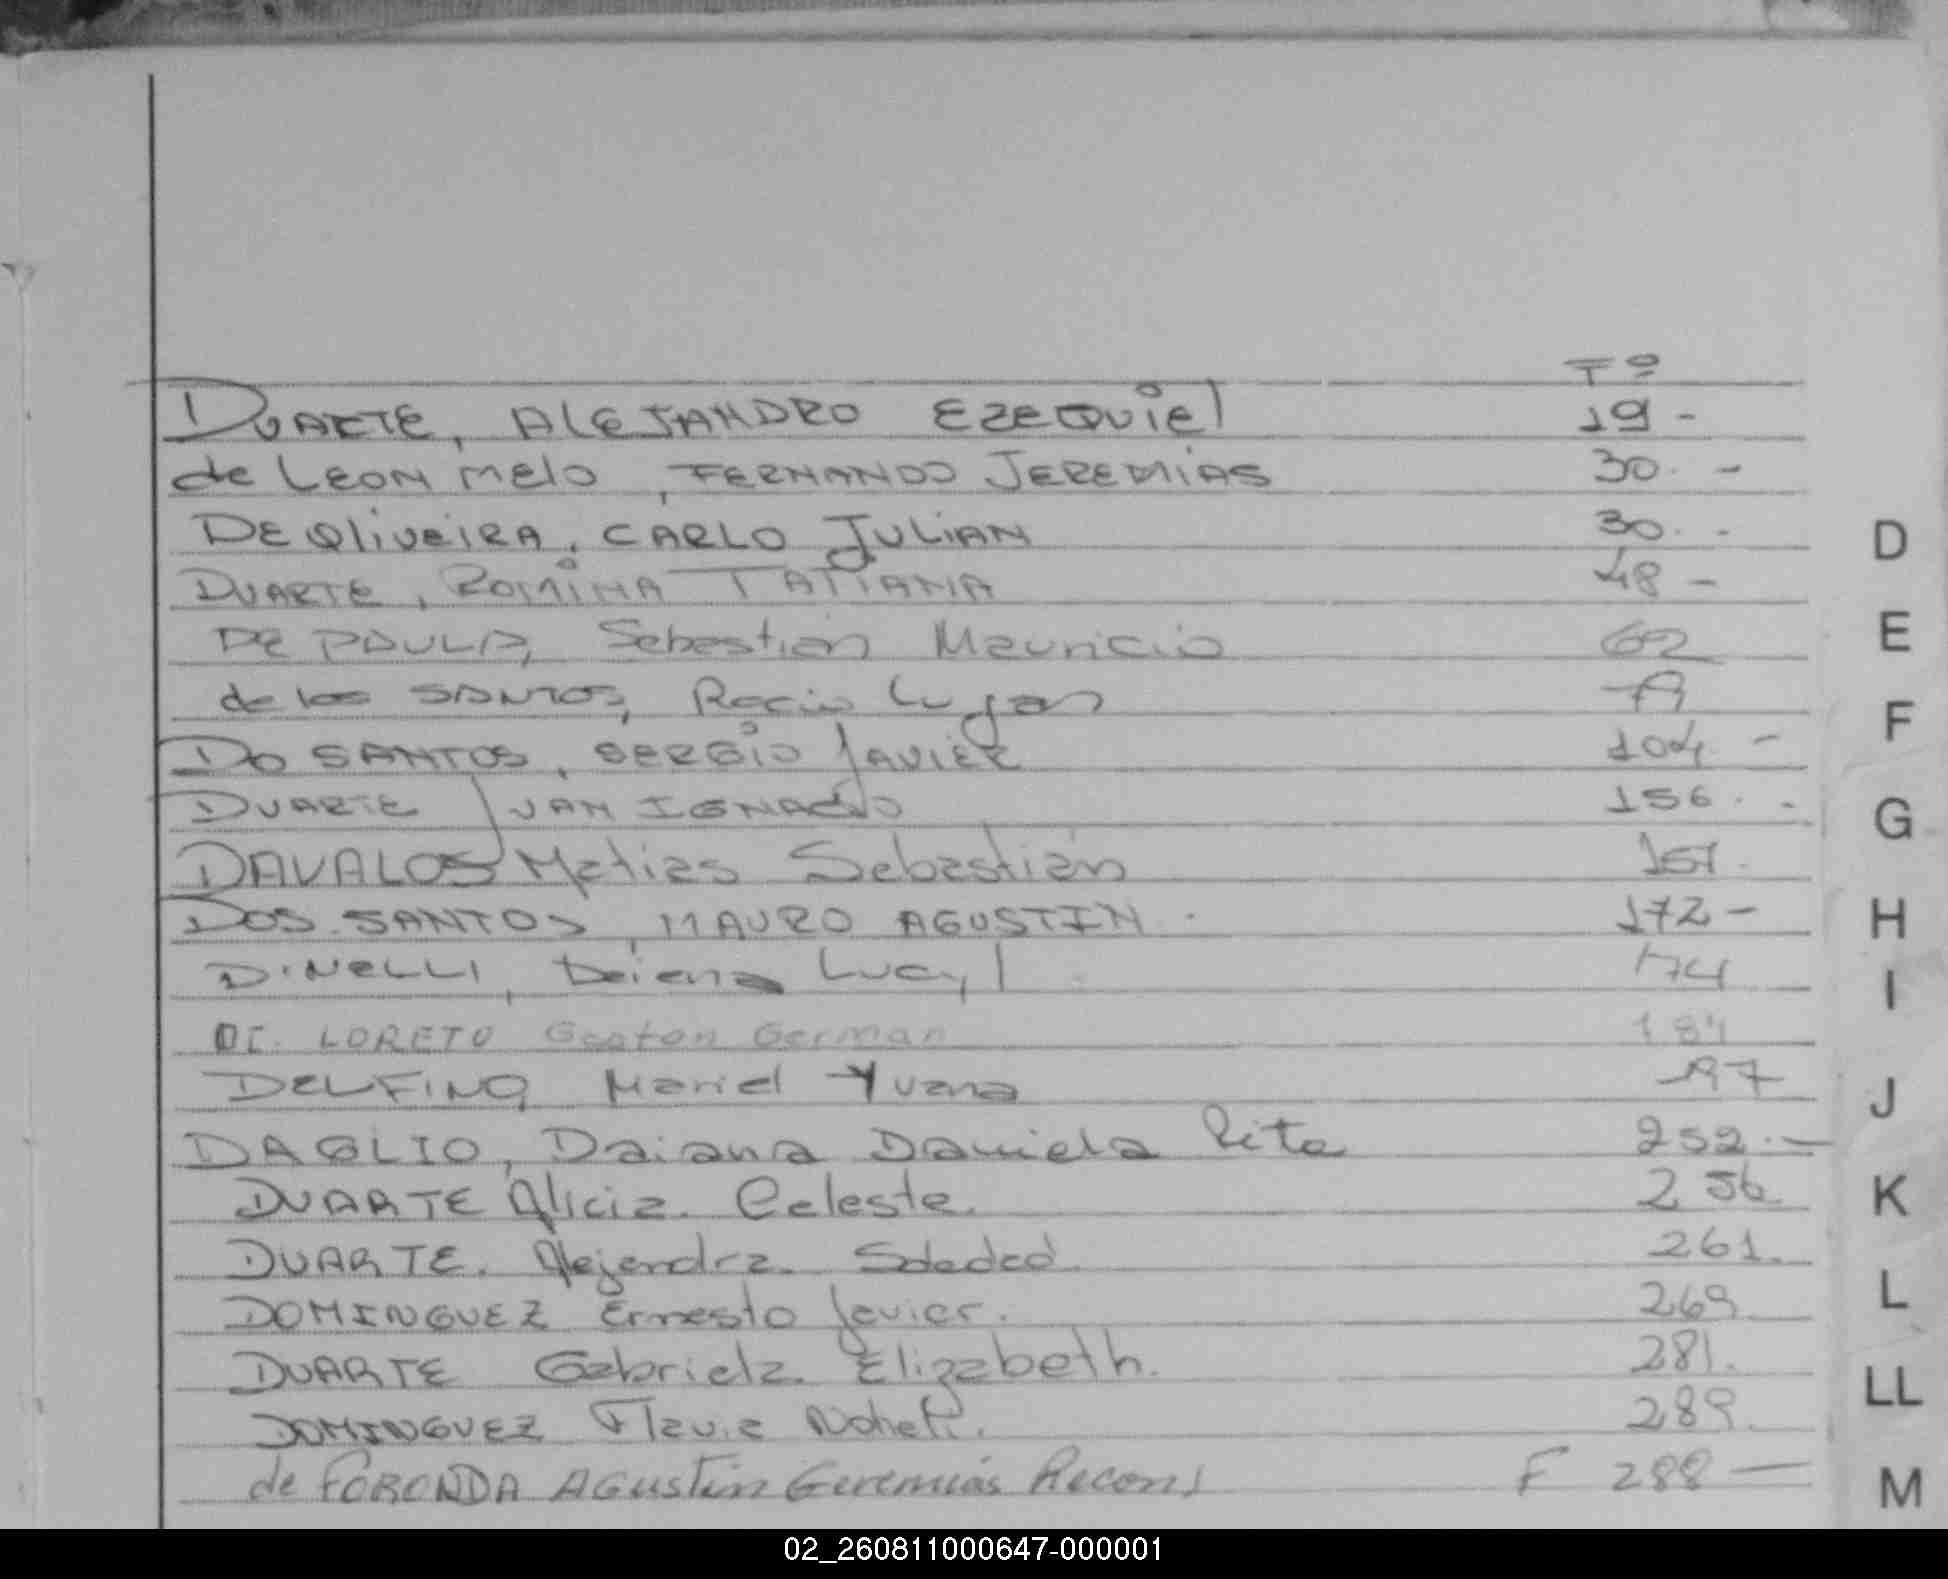 Tº
DUARTE, ALEJANDRO EZEQUiel 19 -
de LEON Melo, FERNANDO JEREMIAS 30. -
DE OliveiRA, CARLO JULIAN 30. -
DUARTE, ROMINA TATIANA 48 -
DE PAULA, Sebastian Mauricio 62
de los SANTOS, Rocio Lujan 79
DO SANTOS, SERGIO JAVIER 104 -
DUARTE JUAN IGNACIO 156. -
DAVALOS Matias Sebastián 157.
DOS SANTOS, MAURO AGUSTIN. 172 -
DiNELLI, Daiana Lucy 174
DI. LORETO Gaston German 184
DELFINO, Mariel Yvana 197
DAGLIO, Daiana Daniela Rita 252. -
DUARTE Alicia. Celeste. 256.
DUARTE. Alejandra. Soledad. 261.
DOMINGUEZ Ernesto Javier. 269
DUARTE Gabriela. Elizabeth. 281.
DOMINGUEZ Flavia 289.
de FORONDA AGustin Geremias Recon. F 288 -
D
E
F
G
H
I
J
K
L
LL
M
02_260811000647-000001